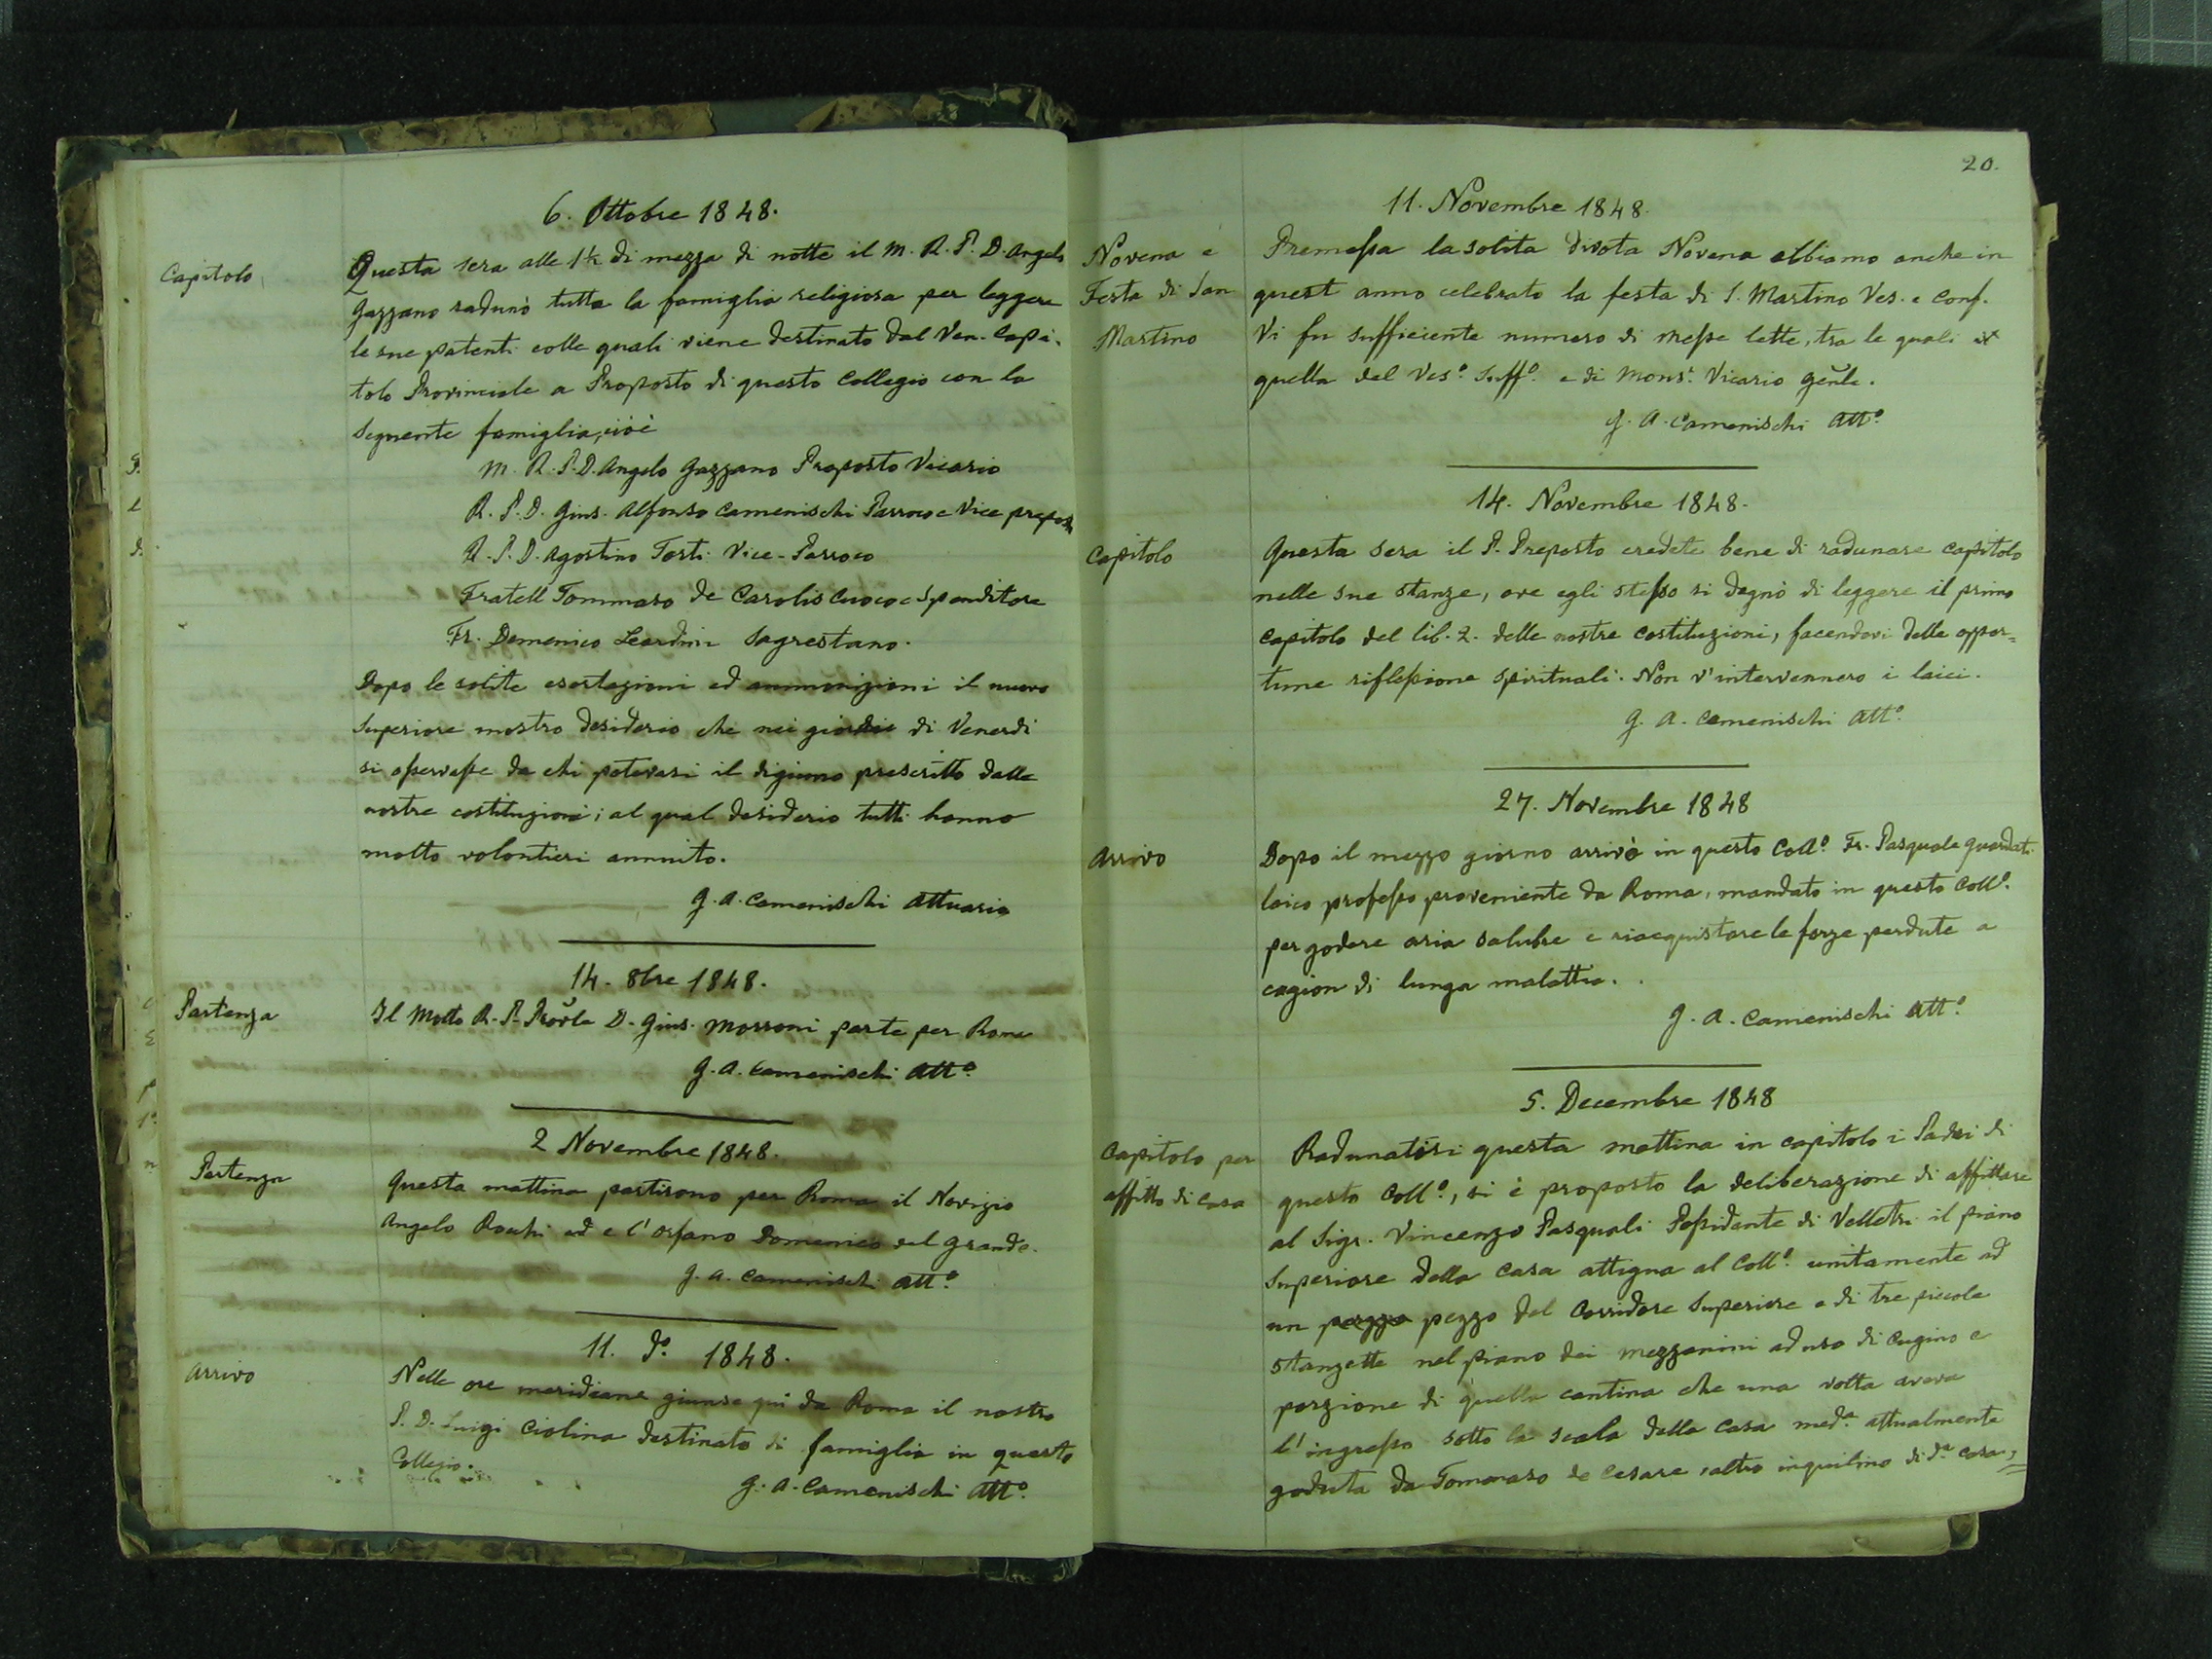 6. Ottobre 1848.
Capitolo
Questa sera alle 1½ di mezza di notte il M. R. P. D. Angelo
Gazzano radunò tutta la famiglia religiosa per leggere
le sue patenti colle quali viene destinato dal Ven. Capi-
tolo Provinciale a Proposto di questo Collegio con la
seguente famiglia, cioè
M. R. P. D. Angelo Gazzano Proposto Vicario
R. P. D. Gius. Alfonso Camenischi Parroco e Vice prepost
R. P. D. Agostino Torti Vice-Parroco
Fratell Tommaso de Carolis Cuoco e Spenditore
Fr. Domenico Leardini Sagrestano.
Dopo le solite esortazioni ed ammonizioni il nuovo
Superiore mostro desiderio che nei giorni di Venerdi
si osservasse da chi potevasi il digiuno prescritto dalle
nostre costituzioni; al qual desiderio tutti hanno
molto volontieri annuito.
G. A. Camenischi Attuario
14. 8bre 1848.
Partenza
Il Molto R. P. Provle D. Gius. Marroni parte per Roma
G. A. Camenischi Att.º
2 Novembre 1848.
Partenza
Questa mattina partirono per Roma il Novizio
Angelo Rochi ed e l'orfano Domenico del Grande.
G. A. Camenischi Att.º
11. dº. 1848.
Arrivo
Nelle ore meridiane giunse qui da Roma il nostro
P. D. Luigi Ciolina destinato di famiglia in questo
Collegio.
G. A. Camenischi Att.º
20.
11. Novembre 1848.
Novena e
Festa di San
Martino
Premessa la solita divota Novena abbiamo anche in
quest anno celebrato la festa di S. Martino Ves. e Conf.
Vi fu sufficiente numero di messe lette, tra le quali
quella del Ves.º Suff.º e di Mons.r Vicario Genle.
G. A. Camenischi Att.º
14. Novembre 1848.
Capitolo
Questa sera il P. Preposto credete bene di radunare capitolo
nelle sue stanze, ove egli stesso si degnò di leggere il primo
capitolo del lib. 2. delle nostre costituzioni, facendovi delle oppor=
tune riflessione spirituali. Non v'intervennero i laici.
G. A. Camenischi Att.º
27. Novembre 1848
Arrivo
Dopo il mezzo giorno arrivò in questo Coll.º Fr. Pasquale Guardati
laico professo proveniente da Roma, mandato in questo Coll.º
per godere aria salubre e riacquistare le forze perdute a
cagion di lunga malattia.
G. A. Camenischi Att.º
5. Decembre 1848
Capitolo per
affitto di casa
Radunatisi questa mattina in capitolo i Padri di
questo Coll.º, si è proposto la deliberazione di affittare
al Sigr. Vincenzo Pasquali Possidente di Velletri il piano
Superiore della casa attigua al Coll.º unitamente ad
un pezzo del Corridore Superiore e di tre piccole
stanzette nel piano dei mezzanini ad uso di cugino e
porzione di quella cantina che una volta aveva
l'ingresso sotto la scala della casa med.a attualmente
goduta da Tommaso de Cesare, altro inquilino di d.a casa;